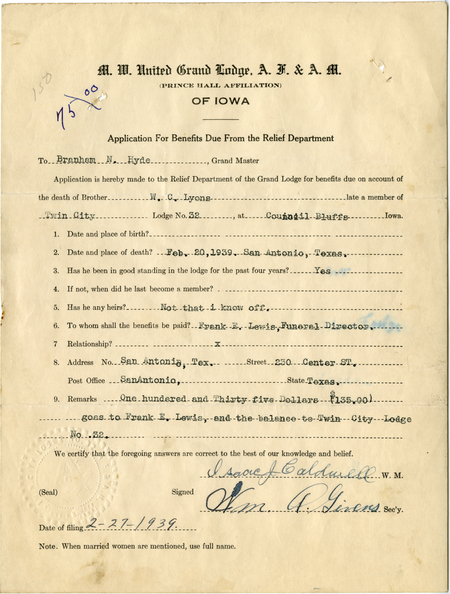 150
75 00
M. W. United Grand Lodge, A. F. & A. M.
(PRINCE HALL AFFILIATION)
OF IOWA
Application For Benefits Due From the Relief Department
To Branham N. Hyde, Grand Master
Application is hereby made to the Relief Department of the Grand Lodge for benefits due on account of
the death of Brother W. C. Lyons late a member of
Twin City Lodge No. 32, at Council Bluffs Iowa.
1. Date and place of birth?
2. Date and place of death? Feb. 20,1939. San Antonio, Texas.
3. Has he been in good standing in the lodge for the past four years? Yes
4. If not, when did he last become a member?
5. Has he any heirs? Not that i know off.
6. To whom shall the benefits be paid? Frank E. Lewis,Funeral Director.
7 Relationship? x
8. Address No. San Antonio, Tex. Street 230 Center ST.
Post Office SanAntonio, State Texas.
9. Remarks One hundred and Thirty five Dollars $135.00)
goes to Frank E. Lewis, and the balance to Twin City Lodge
No .32.
We certify that the foregoing answers are correct to the best of our knowledge and belief.
Isaac J. Caldwell W. M.
(Seal) Signed Wm A. Givens Sec'y.
Date of filing 2-27-1939
Note. When married women are mentioned, use full name.